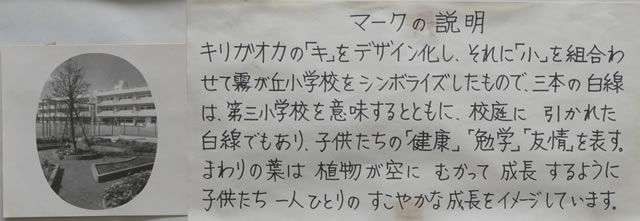 マークの説明
キリガオカの「キ」をデザイン化し、それに「小」を組合わ
せて霧が丘小学校をシンボライズしたもので、三本の白線
は、第三小学校を意味するとともに、校庭に 引かれた
白線でもあり、子供たちの「健康」「勉学」「友情」を表す。
まわりの葉は 植物が空に むかって 成長 するように
子供たち 一人ひとりの すこやかな成長をイメージしています。